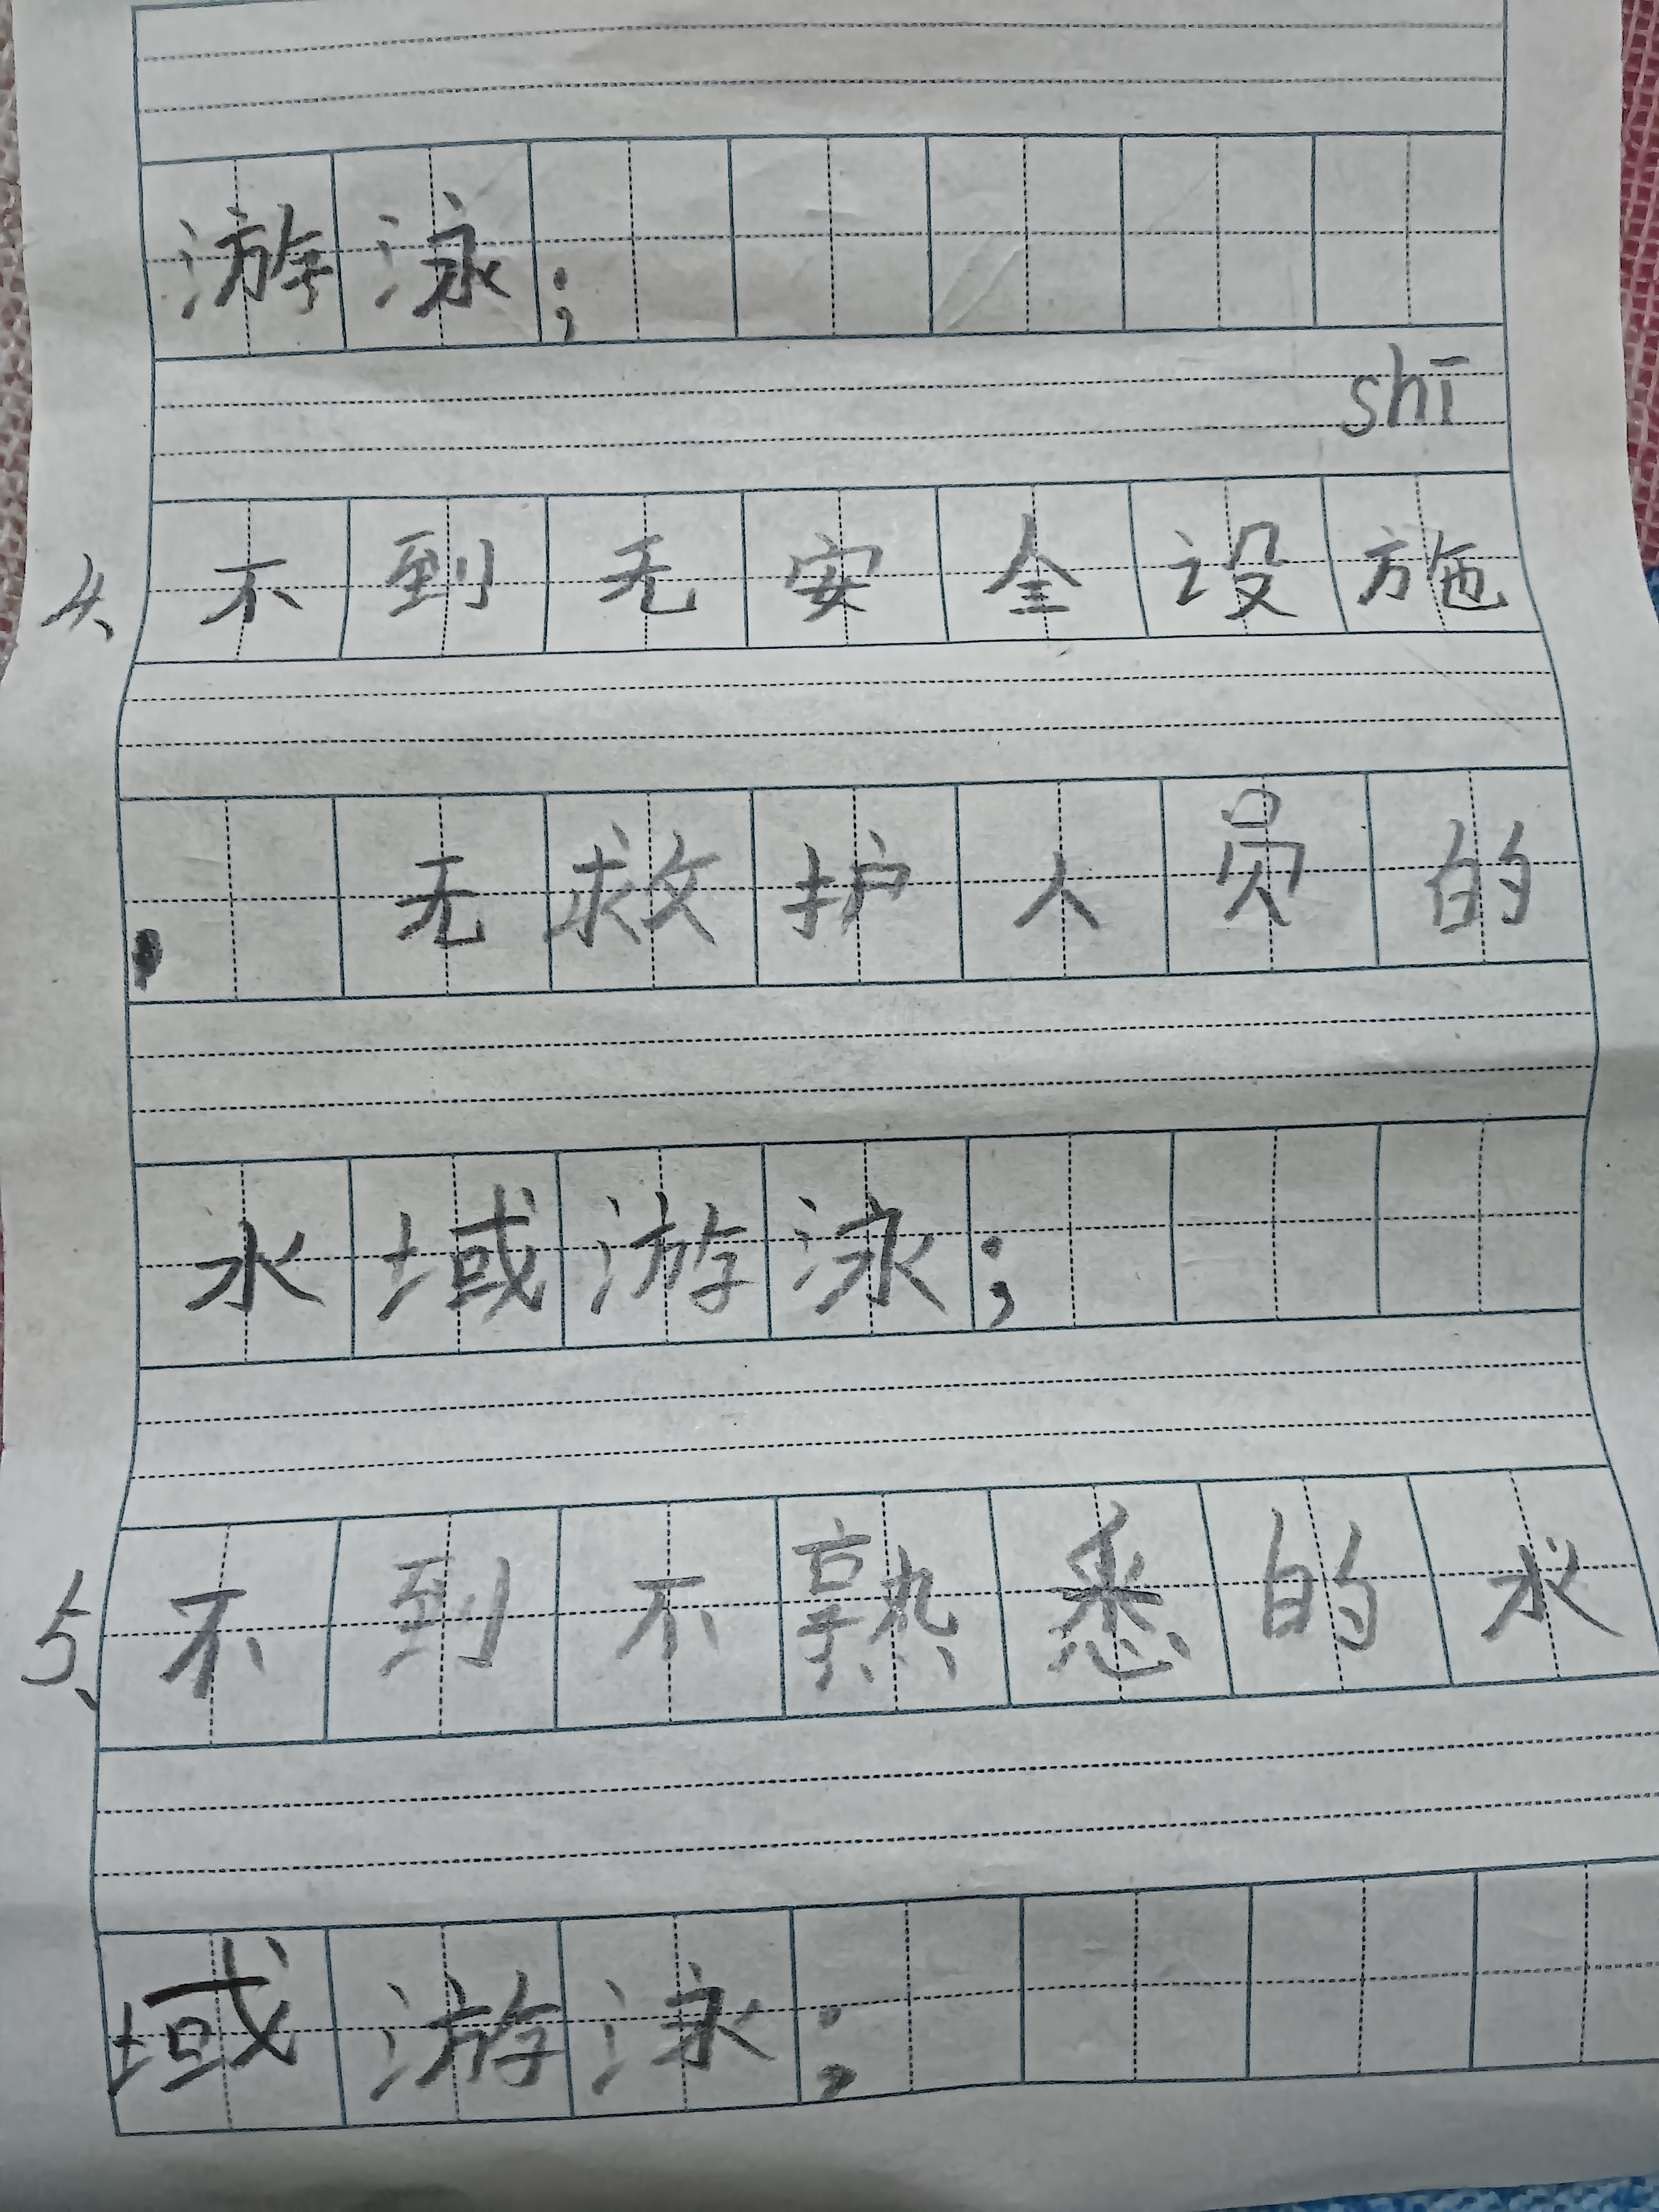 游泳；
shī
4、不到无安全设施
、无救护人员的
水域游泳；
5、不到不熟悉的水
域游泳；